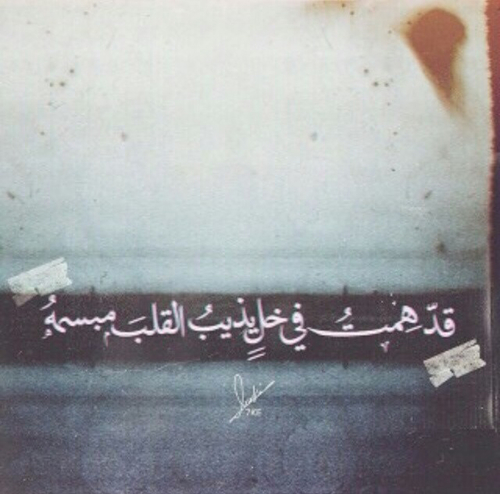 قدّ همتُ في خلٍ يذيبُ القلبَ مبسمهُ